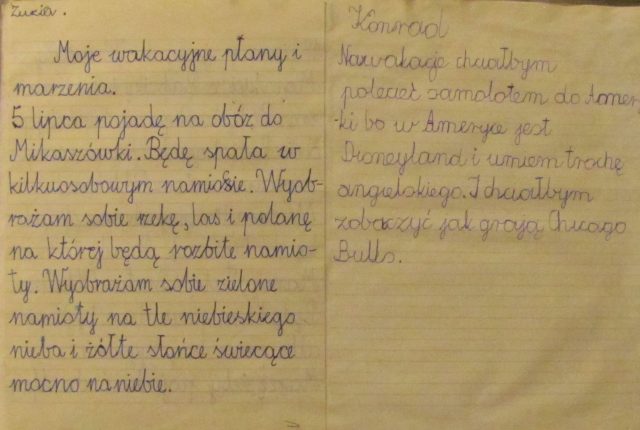 Zuzia.
Moje wakacyjne plany i
marzenia.
5 lipca pojadę na obóz do
Mikaszówki. Będę spała w
kilkuosobowym namiocie. Wyob-
rażam sobie rzekę, las i polanę
na której będą rozbite namio-
ty. Wyobrażam sobie zielone
namioty na tle niebieskiego
nieba i żółte słońce świecące
mocno na niebie.
Konrad
Na wakacje chciałbym
polecieć samolotem do Amer-
ki bo w Ameryce jest
Disneyland i umiem trochę
angielskiego. I chciałbym
zobaczyć jak grają Chicago
Bulls.